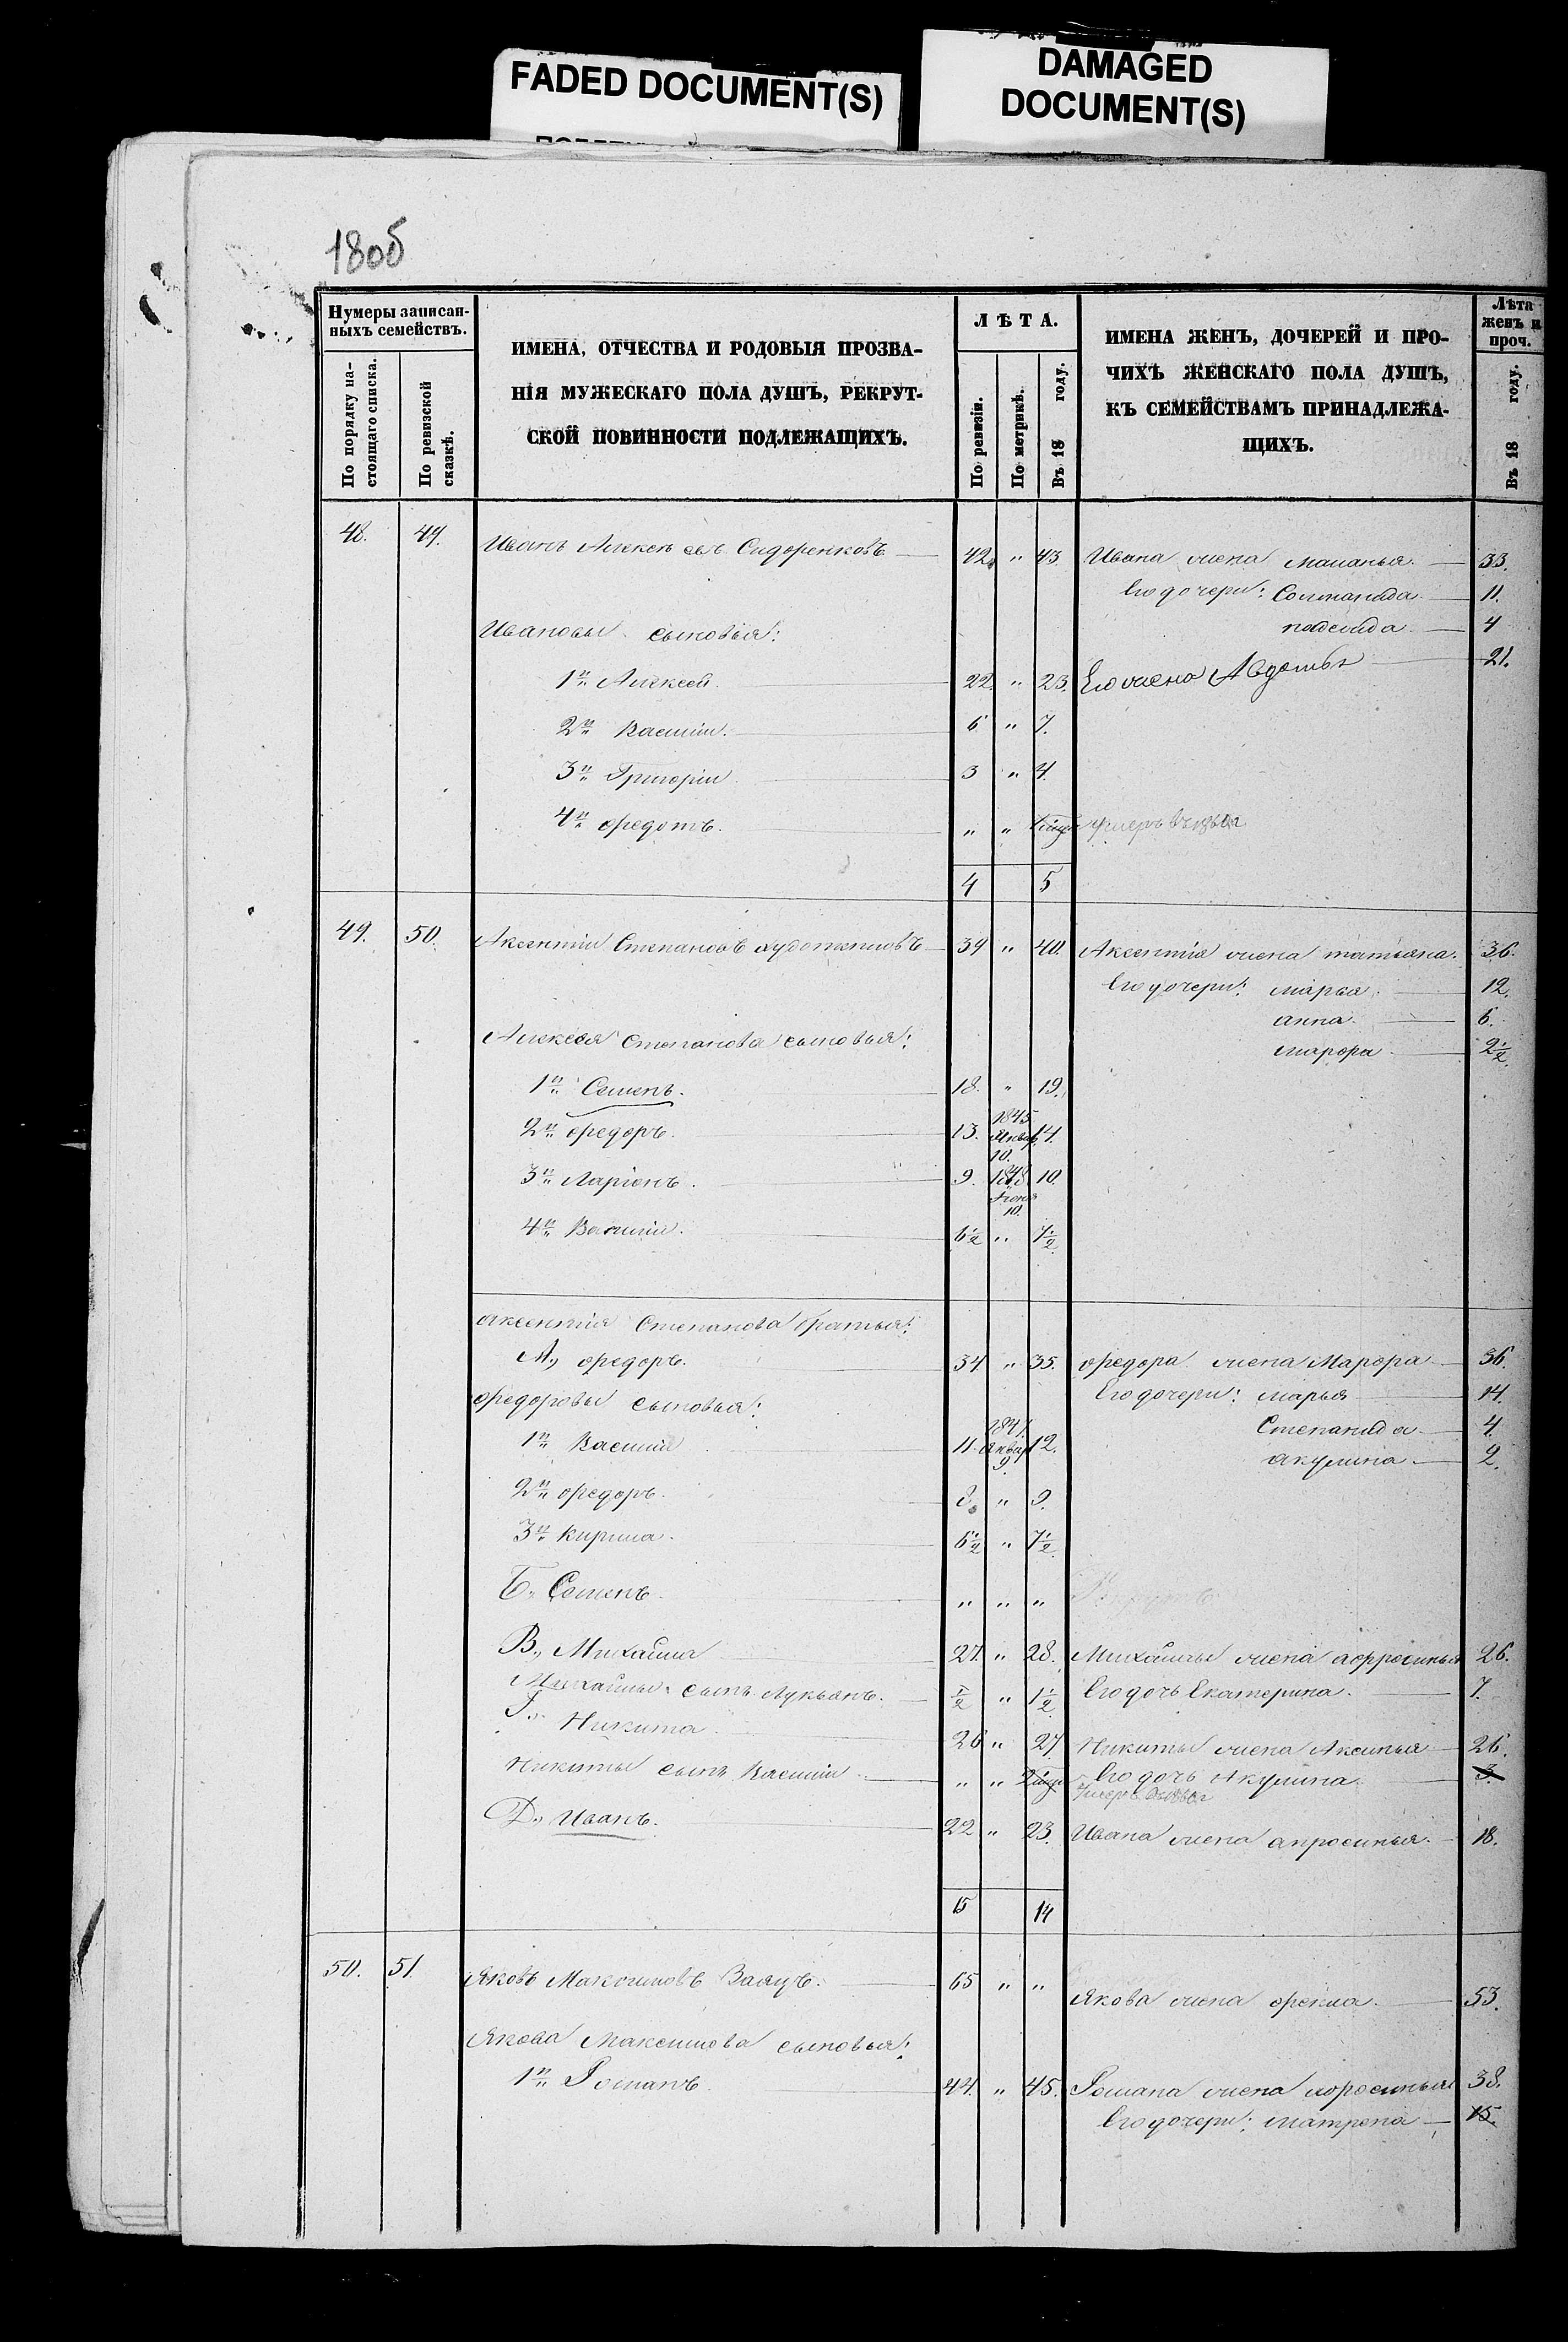 FADED DOCUMENT(S)
DAMAGED
DOCUMENT(S)
180б
Нумеры записан-
ныхъ семействъ.
По порядку на-
стоящаго списка.
По ревизской
сказкѣ.
ИМЕНА, ОТЧЕСТВА И РОДОВЫЯ ПРОЗВА-
НІЯ МУЖЕСКАГО ПОЛА ДУШЪ, РЕКРУТ-
СКОЙ ПОВИННОСТИ ПОДЛЕЖАЩИХЪ.
ЛѢТА.
По ревизіи.
По метрикѣ.
Въ 18 году.
ИМЕНА ЖЕНЪ, ДОЧЕРЕЙ И ПРО-
ЧИХЪ ЖЕНСКАГО ПОЛА ДУШЪ,
КЪ СЕМЕЙСТВАМЪ ПРИНАДЛЕЖА-
ЩИХЪ.
Лѣта
женъ и
проч.
Въ 18 году.
48. 49. Иванъ Алексѣевъ Сидоренковъ 42 " 43 Ивана жена Маланья. 33.
Его дочери: Соломанида 11.
4
Ивановы сыновья:
1й Алексей 22. " 23. Его жена Авдотья 21.
2й Василій. 6 " 7.
3й Григорій 3 " 4.
4й Ѳедотъ. " " умеръ
4 5
49. 50. Аксентій Степановъ 39 " 40. Аксентія жена татьяна. 36.
Его дочери: марья 12.
анна 6.
марѳра 2½
Алексея Степанова сыновья:
1й Семенъ. 18. " 19.
2й Ѳедоръ. 13. 1845 Январ 10. 14.
3й Ларіонъ. 9. 1848 Іюня 10. 10.
4й Василій. 6½ " 7½
аксентія Степанова братья:
А., Ѳедоръ. 34 " 35. Ѳедора жена Марѳра 36.
Ѳедоровы сыновья: Его дочери: марья 14.
1й Василій 11. 1847. Январ 9. 12. Степанида 4.
акулина 2.
2й Ѳедоръ. 8. " 9.
3й Кирила. 6½ " 7½
Б. Семенъ. " " "
В., Михайла 27. " 28. Михайлы жена аѳросинья 26.
Михайлы сынъ Лукьянъ. ½ " 1½ Его дочь Екатерина. 7.
Г. Никита. 26 " 27 Никиты жена Аксинья 26.
Никиты сынъ Василій " " Его дочь Акулина. 3.
умеръ
Д., Иванъ. 22 " 23. Ивана жена апросинья. 18.
15 14
50. 51. Яковъ Максимовъ Заяцъ. 65 " " Якова жена Ѳекла. 53.
Якова Максимова сыновья:
1й Романъ 44. " 45. Романа жена 38.
Его дочери: матрена 15.